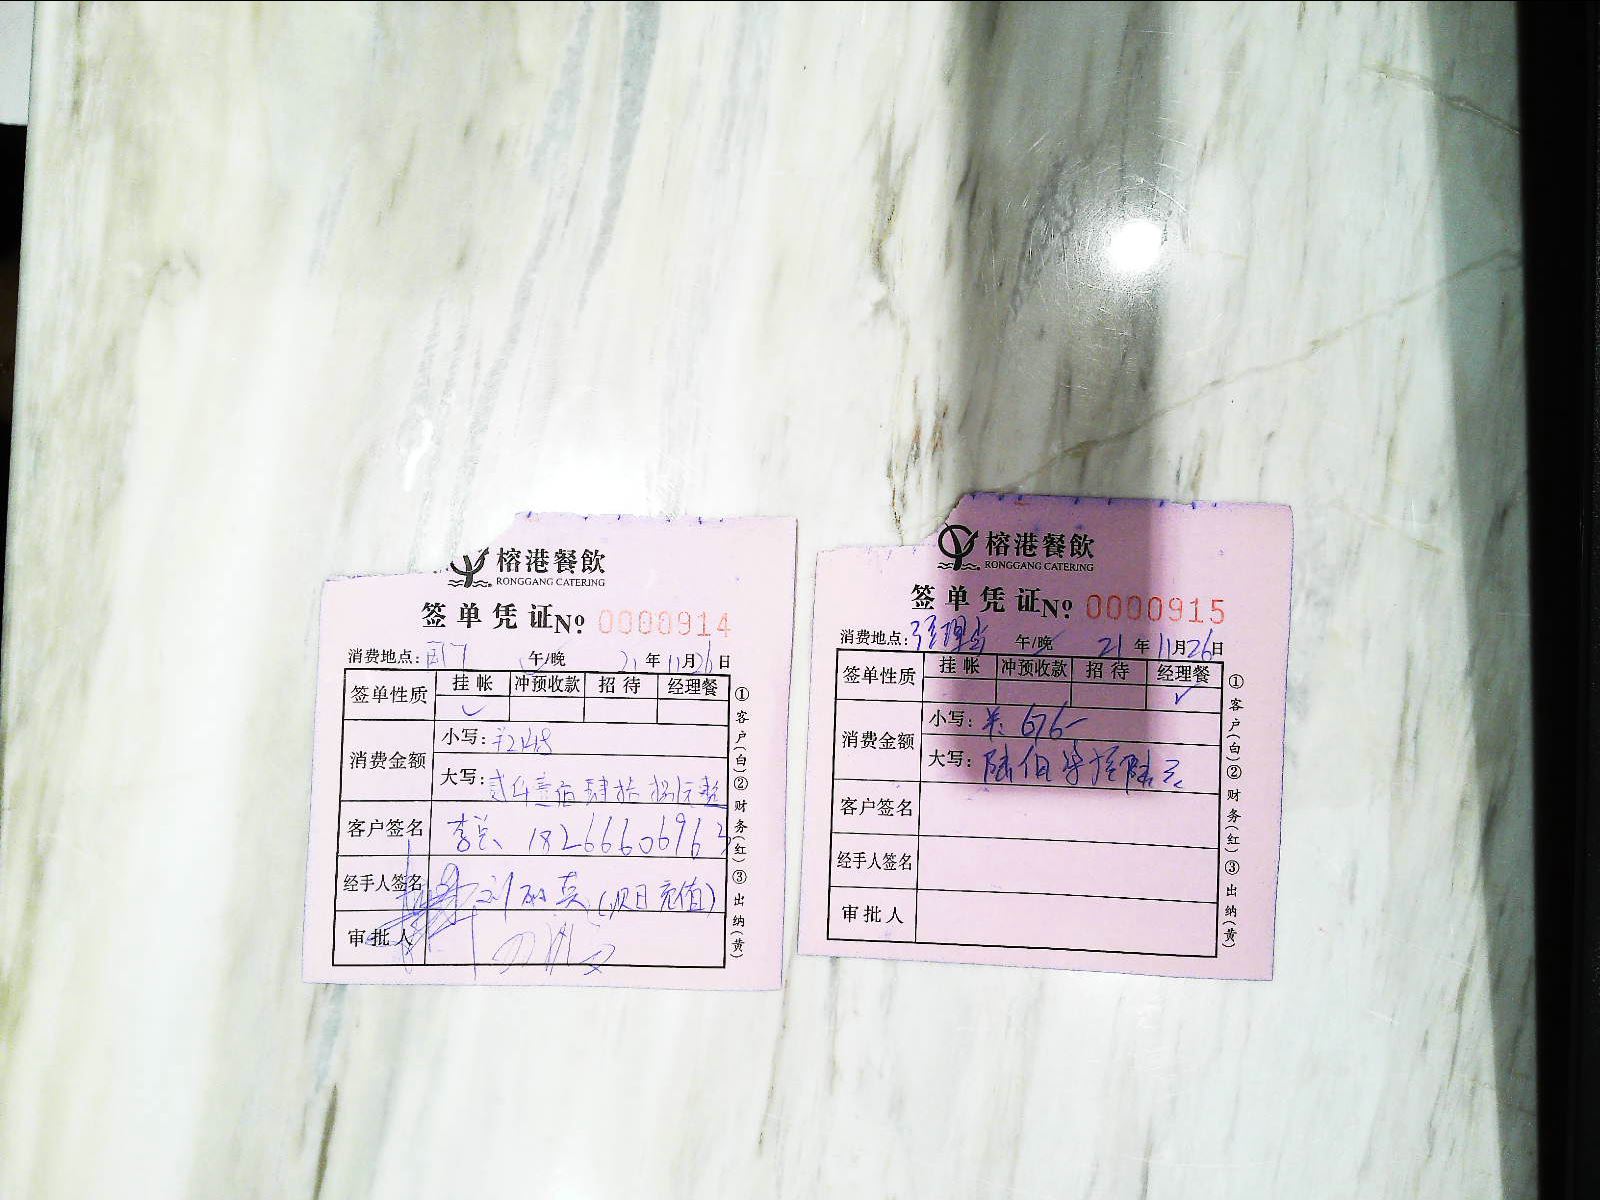 榕港餐飲
RONGGANG CATERING
签单凭证No. 0000914
消费地点: 午/晚 21年11月26日
签单性质 挂帐 冲预收款 招待 经理餐
✓
消费金额
小写:
大写:贰仟壹佰肆拾捌元整
客户签名 李总 18266606963
经手人签名 (次日充值)
审批人
①客户(白)②财务(红)③出纳(黄)
榕港餐飲
RONGGANG CATERING
签单凭证No. 0000915
消费地点: 午/晚 21年11月26日
签单性质 挂帐 冲预收款 招待 经理餐
✓
消费金额
小写: 676-
大写:陆佰柒拾陆元
客户签名
经手人签名
审批人
①客户(白)②财务(红)③出纳(黄)